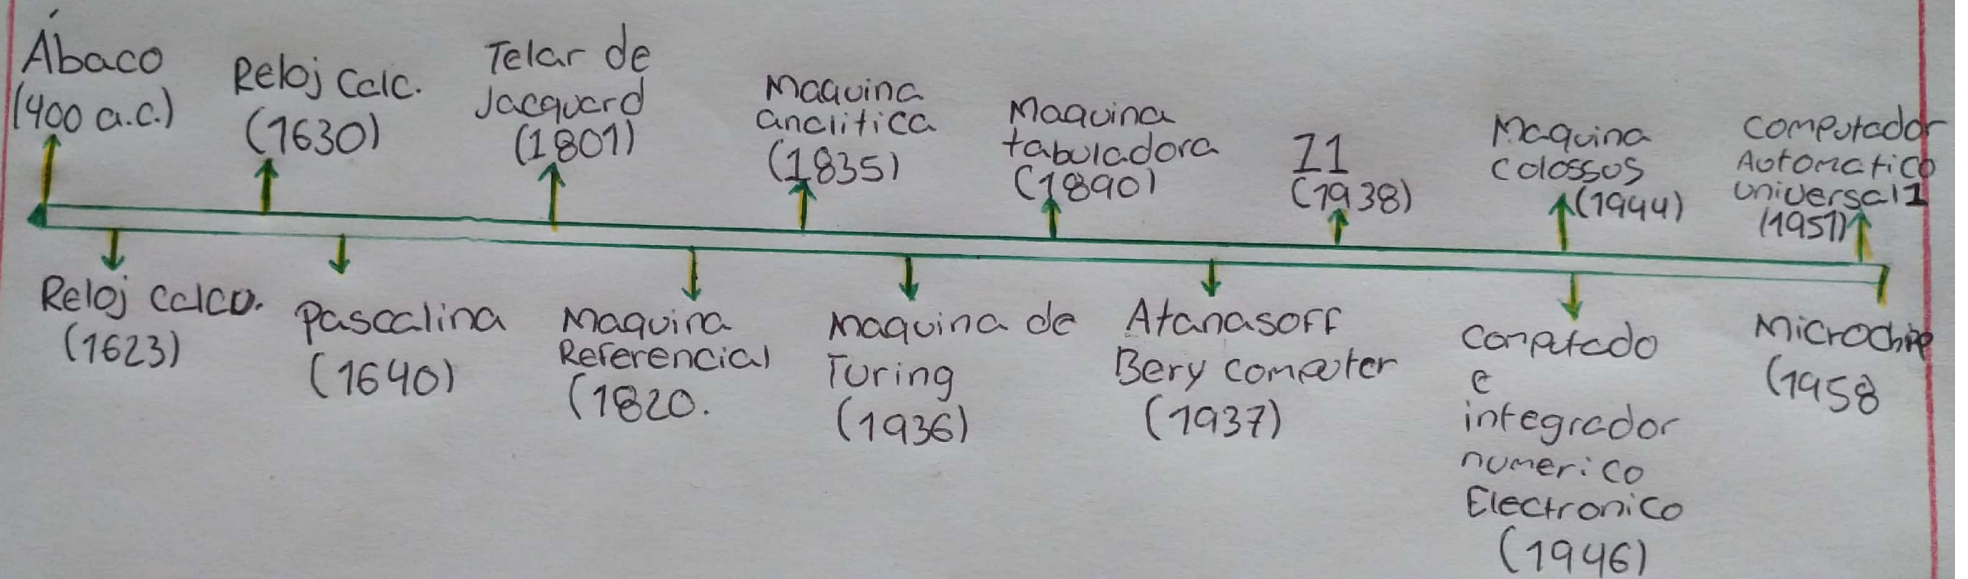 Ábaco
(400 a.c.)
Reloj Calc.
(1630)
Telar de
Jacquard
(1801)
Maquina
analitica
(1835)
Maquina
tabuladora
(1890)
Z1
(1938)
Maquina
Colossus
(1944)
Computador
Automatico
universal1
(1951)
Reloj calcu.
(1623)
Pascalina
(1640)
Maquina
Referencial
(1820.
Maquina de
Turing
(1936)
Atanasoff
Bery computer
(1937)
Computado
e
integrador
numerico
Electronico
(1946)
Microchip
(1958